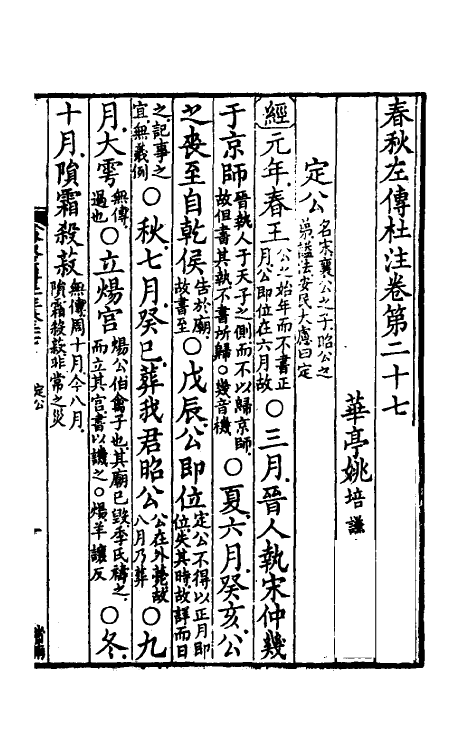 春秋左傳杜注卷第二十七
華亭姚培謙
定公 名宋襄公之子昭公之弟謚法安民大慮曰定
經元年春王 公之始年而不書正月公即位在六月故 ○三月晉人執宋仲幾
于京師 晉執人于天子之側而不以歸京師故但書其執不書所歸○幾音機 ○夏六月癸亥公
之喪至自乾侯 告於廟故書至 ○戊辰公即位 定公不得以正月即位失其時故詳而日
之記事之宜無義例 ○秋七月癸巳葬我君昭公 公在外薨故八月乃葬 ○九
月大雩 無傳過也 ○立煬宮 煬公伯禽子也其廟已毀季氏禱之而立其宮書以譏之○煬羊讓反 ○冬
十月隕霜殺菽 無傳周十月今八月隕霜殺菽非常之災
定公
一